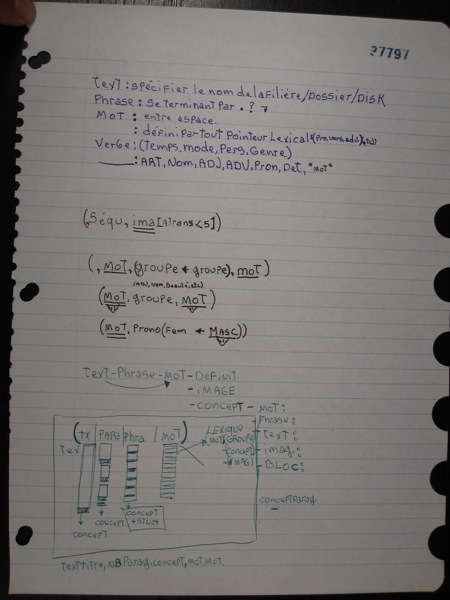 37797
Text : spécifier le nom de la Filière/Dossier/Disk
Phrase : se terminant par . ? 7
MOT : entre espace.
: défini par tout pointeur Lexical
Verbe : (Temps, mode, Pers, Genre)
: ART, Nom, ADJ, ADV, Pron, Det, "MOT"
(Séqu, ima[ATrans<5])
(, MOT, (groupe + groupe), MOT)
(MOT, groupe, MOT)
(MOT, Prono(Fem ← MASC))
Text-Phrase-MOT-Definit.
-IMAGE
-CONCEPT - MOT:
(TX | PARA | Phra. | MOT)
LEXIQUE
Phrase:
TEX
MOT(GROUP)
Text:
CONCEPT
imag:
IMAG
BLOC:
CONCEPT
CONCEPT
CONCEPT
conceptParag.
Text titre, NB Parag-concept, MOT, MOT.